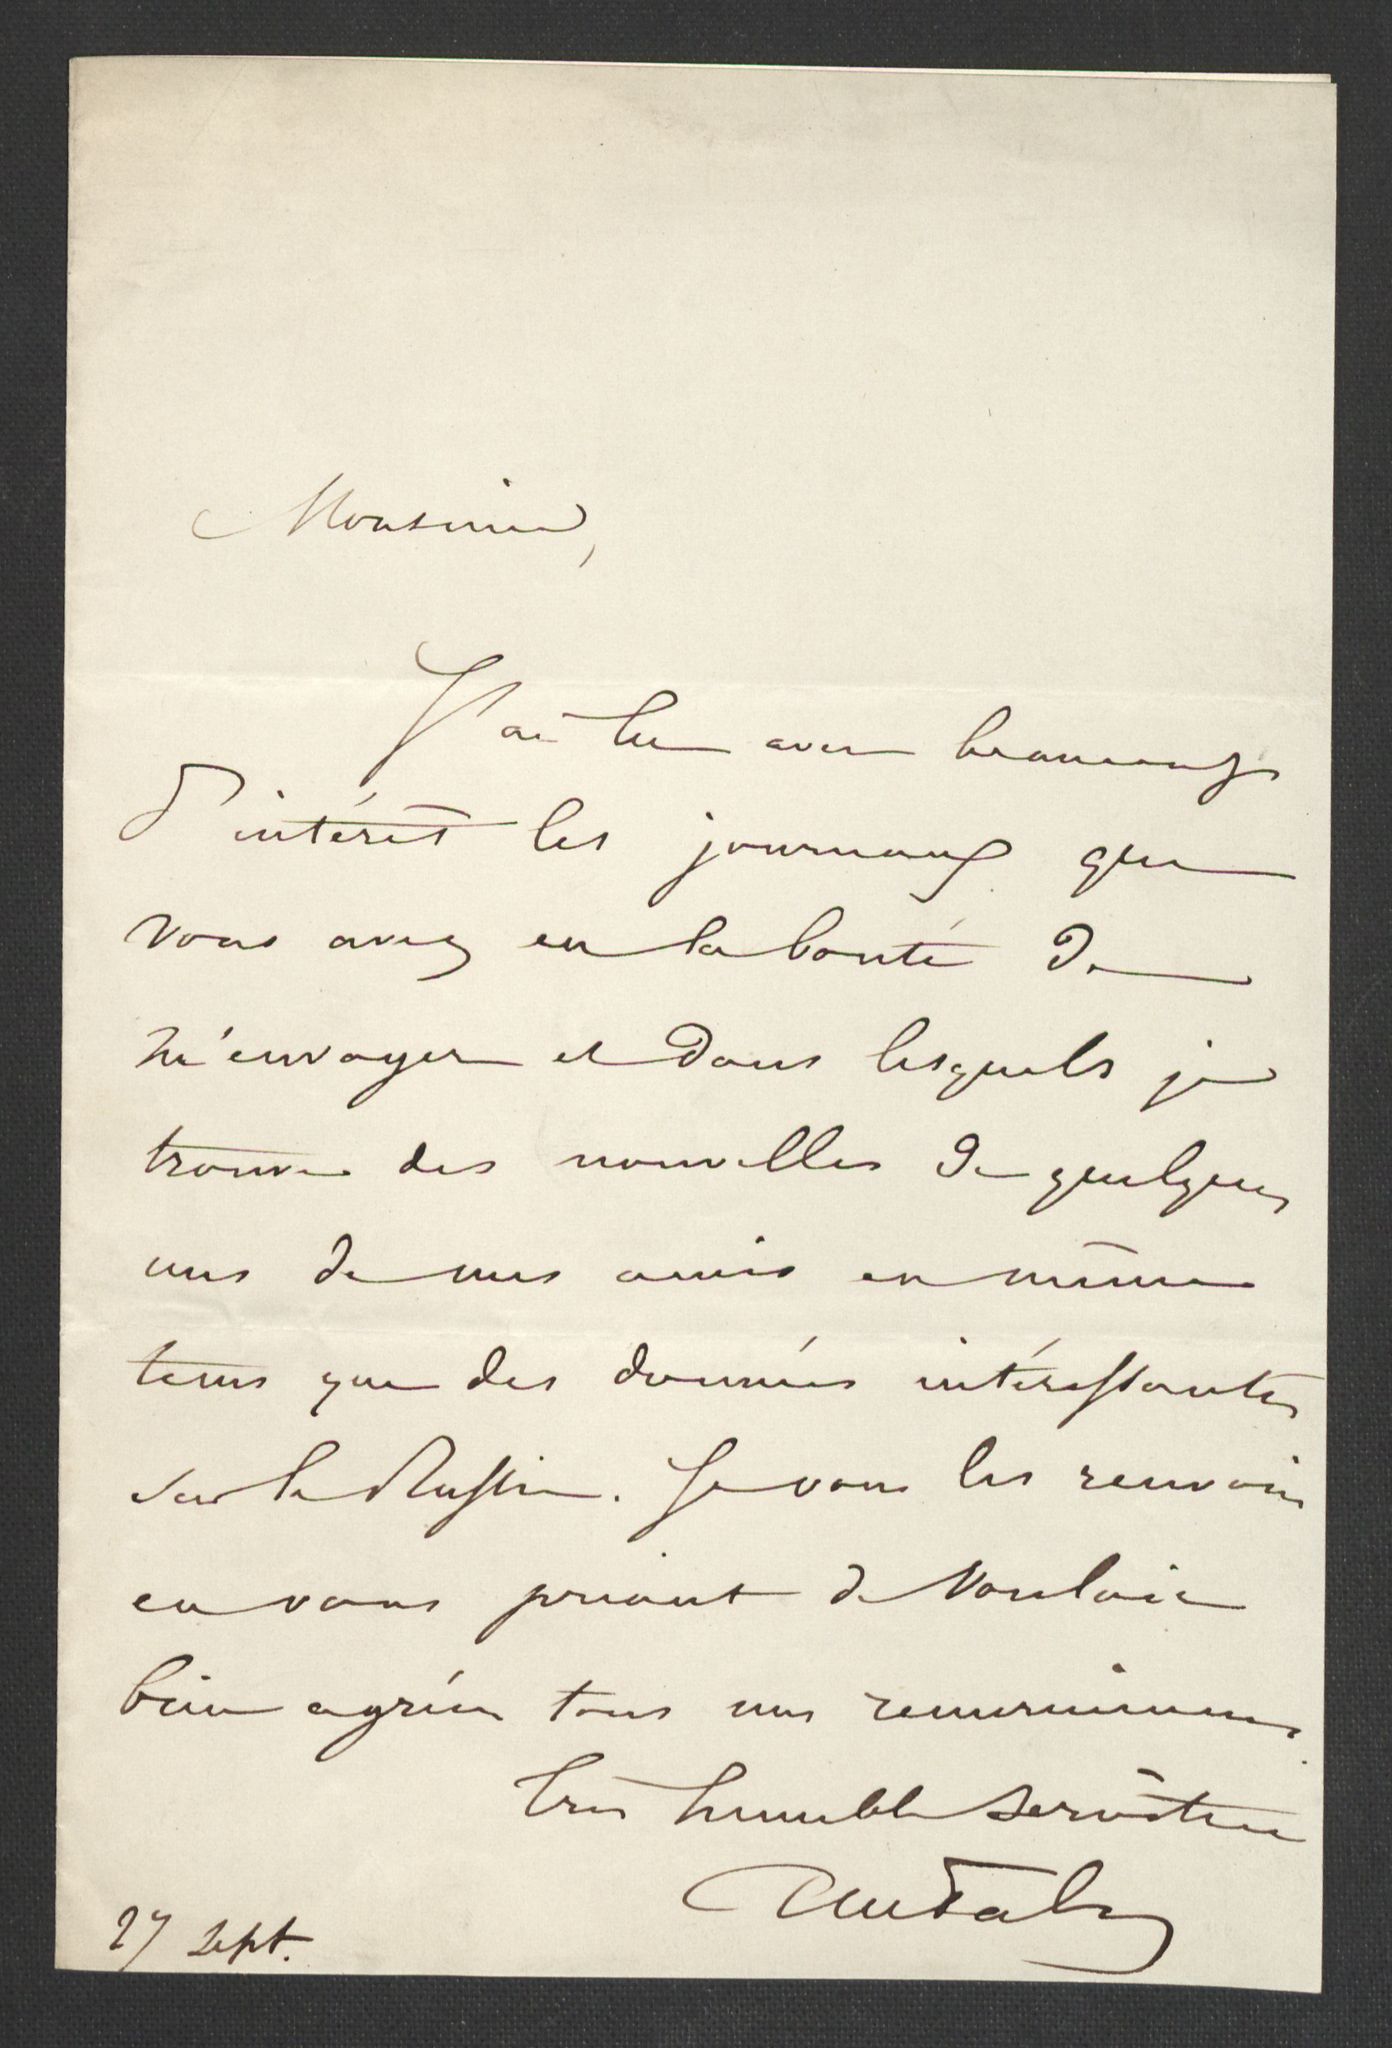 Monsieur,
J'ai lu avec beaucoup
d'intérêt les journaux que
vous avez eu la bonté de
m'envoyer et dans lesquels je
trouve des nouvelles de quelques
uns de mes amis en même
tems que des données intéressantes
sur la Russie. Je vous les renvoie
en vous priant de vouloir
bien agréer tous mes remerciemens.
très humble serviteur
27 Sept.